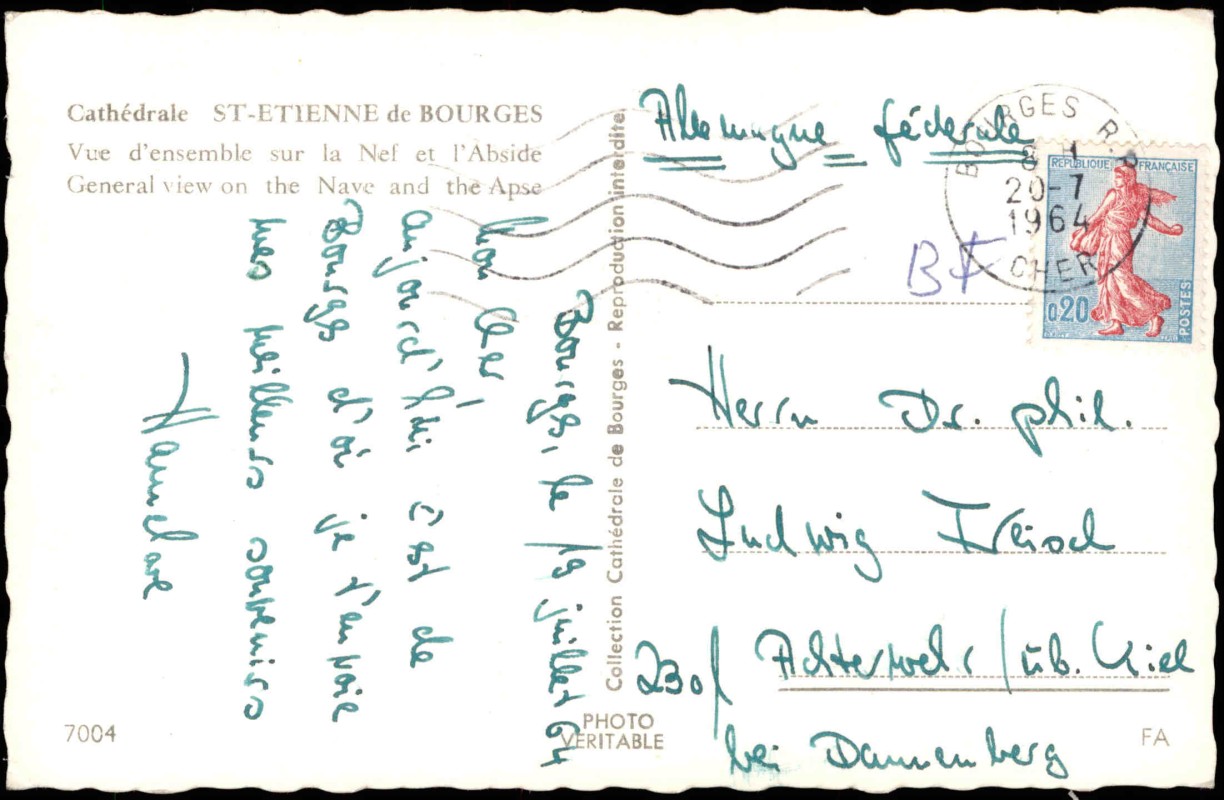 Cathédrale ST-ETIENNE de BOURGES
Vue d'ensemble sur la Nef et l'Abside
General view on the Nave and the Apse
Bourges, le 19 juillet 64
Mon cher,
aujourd'hui c'est de
Bourges d'où je t'envoie
mes meilleurs souvenirs
Hannelore
7004
Collection Cathédrale de Bourges - Reproduction interdite
PHOTO
VERITABLE
Allemagne fédérale
BOURGES R.P.
8 H
20-7
1964
CHER
REPUBLIQUE FRANÇAISE
0,20
POSTES
Herrn Dr. phil.
Ludwig
230/ Achterwehr / üb. Kiel
bei Dannenberg
FA